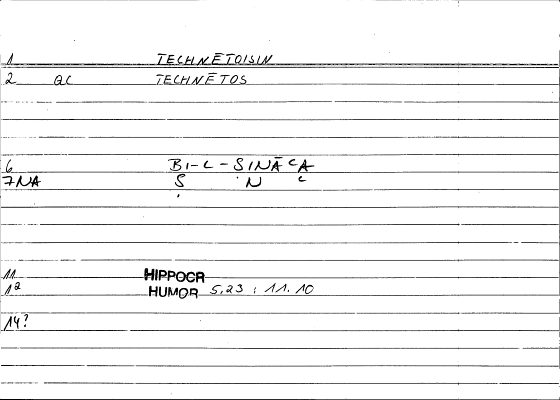 1 TECHNĒTOISIN
2 QC TECHNĒTOS
6 BI-L-SINĀʿA
7NA Ṣ N ʿ
11 HIPPOCR
12 HUMOR 5,23 : 11.10
14?